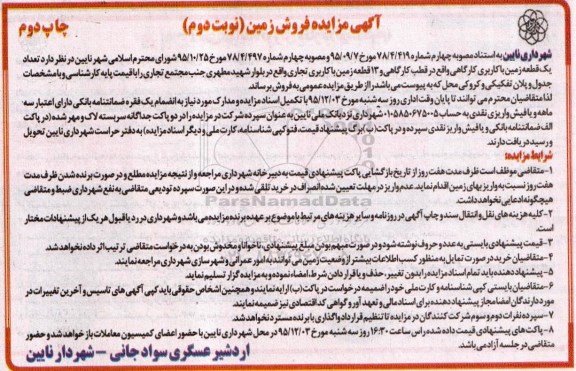 آگهی مزایده فروش زمین (نوبت دوم)
چاپ دوم
شهرداری نایین به استناد مصوبه چهارم شماره ۷۸/۴/۴۱۹ مورخ ۹۵/۰۹/۷ و مصوبه چهارم شماره ۷۸/۴/۴۹۷ مورخ ۹۵/۱۰/۲۵ شورای محترم اسلامی شهر نایین در نظر دارد تعداد
یک قطعه زمین با کاربری کارگاهی واقع در قطب کارگاهی و ۱۳ قطعه زمین با کاربری تجاری واقع در بلوار شهید مطهری جنب مجتمع تجاری را با قیمت پایه کارشناسی و با مشخصات
جدول و پلان تفکیکی و کروکی محل که به پیوست می باشد را از طریق مزایده عمومی به فروش برساند.
لذا متقاضیان محترم می توانند تا پایان وقت اداری روز سه شنبه مورخ ۹۵/۱۲/۰۳ با تکمیل اسناد مزایده و مدارک مورد نیاز به انضمام یک فقره ضمانتنامه بانکی دارای اعتبار سه
ماهه و یا فیش واریزی نقدی به حساب ۰۱۰۵۸۵۰۶۷۵۰۰۵ شهرداری نزد بانک ملی نایین به عنوان سپرده شرکت در مزایده را در دو پاکت جداگانه سربسته لاک و مهر شده (در پاکت
الف ضمانتنامه بانکی و یا فیش واریز نقدی سپرده و در پاکت (ب) برگ پیشنهاد قیمت، فتوکپی شناسنامه، کارت ملی و دیگر اسناد مزایده) به دفتر حراست شهرداری نایین تحویل
و رسید دریافت دارند.
شرایط مزایده:
۱-متقاضی موظف است ظرف مدت هفت روز از تاریخ بازگشایی پاکت پیشنهادی قیمت به دبیرخانه شهرداری مراجعه و از نتیجه مزایده مطلع و در صورت برنده شدن ظرف مدت
هفت روز نسبت به واریز بهای زمین اقدام نماید. عدم واریز در مهلت تعیین شده انصراف در خرید تلقی شده و در این صورت سپرده تودیعی متقاضی به نفع شهرداری ضبط و متقاضی
هیچگونه ادعایی نخواهد داشت.
۲-کلیه هزینه های نقل و انتقال سند و چاپ آگهی در روزنامه و سایر هزینه های مرتبط با موضوع بر عهده برنده مزایده می باشد و شهرداری در رد یا قبول هر یک از پیشنهادات مختار
است.
۳-قیمت پیشنهادی بایستی به عدد و حروف نوشته شود و در صورت مبهم بودن مبلغ پیشنهادی، ناخوانا و مخدوش بودن به درخواست متقاضی ترتیب اثر داده نخواهد شد.
۴-متقاضیان خرید در صورت تمایل به منظور کسب اطلاعات بیشتر از وضعیت زمین می توانند به امور عمرانی و شهرسازی شهرداری مراجعه نمایند.
۵-پیشنهاد دهنده باید تمام اسناد مزایده را بدون تغییر، حذف و یا قرار دادن شرط، امضاء نموده و به مزایده گزار تسلیم نماید.
۶-متقاضیان بایستی کپی شناسنامه و کارت ملی خود را ضمیمه درخواست در پاکت (ب) ارایه نمایند و همچنین اشخاص حقوقی باید کپی آگهی های تاسیس و آخرین تغییرات در
مورد دارندگان امضاء مجاز پیشنهاد دهنده برای اسناد مالی و تعهد آور و گواهی کد اقتصادی نیز ضمیمه نمایند.
۷-سپرده نفرات دوم و سوم شرکت کنندگان در مزایده تا تنظیم قرارداد واگذاری با برنده مسترد نخواهد شد.
۸-پاکت های پیشنهادی قیمت داده شده راس ساعت ۱۶:۳۰ روز سه شنبه مورخ ۹۵/۱۲/۰۳ در محل شهرداری نایین با حضور اعضای کمیسیون معاملات باز خواهد شد و حضور
متقاضی در جلسه آزاد می باشد.
اردشیر عسگری سواد جانی - شهردار نایین
ParsNamadData